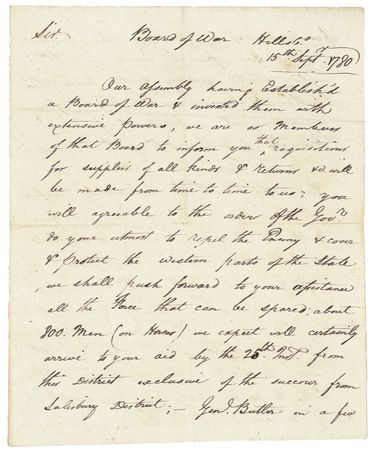 Sir Board of War Hillsbo.
15th Sept. 1780
Our Assembly having Establish'd
a Board of War & invested them with
extensive Powers, we are as Members
of that Board to inform you that requisitions
for supplies of all kinds & returns &c. will
be made from time to time to us; you
will agreeable to the orders of the Govr.
do your utmost to repel the Enemy & cover
& Protect the western parts of the State
, we shall push forward to your assistance
all the Force that can be spared, about
800. Men (on Horses) we expect will certainly
arrive to your aid by the Inst. from
this District exclusive of the succour from
Salisbury District; — Genl. Butler in a few